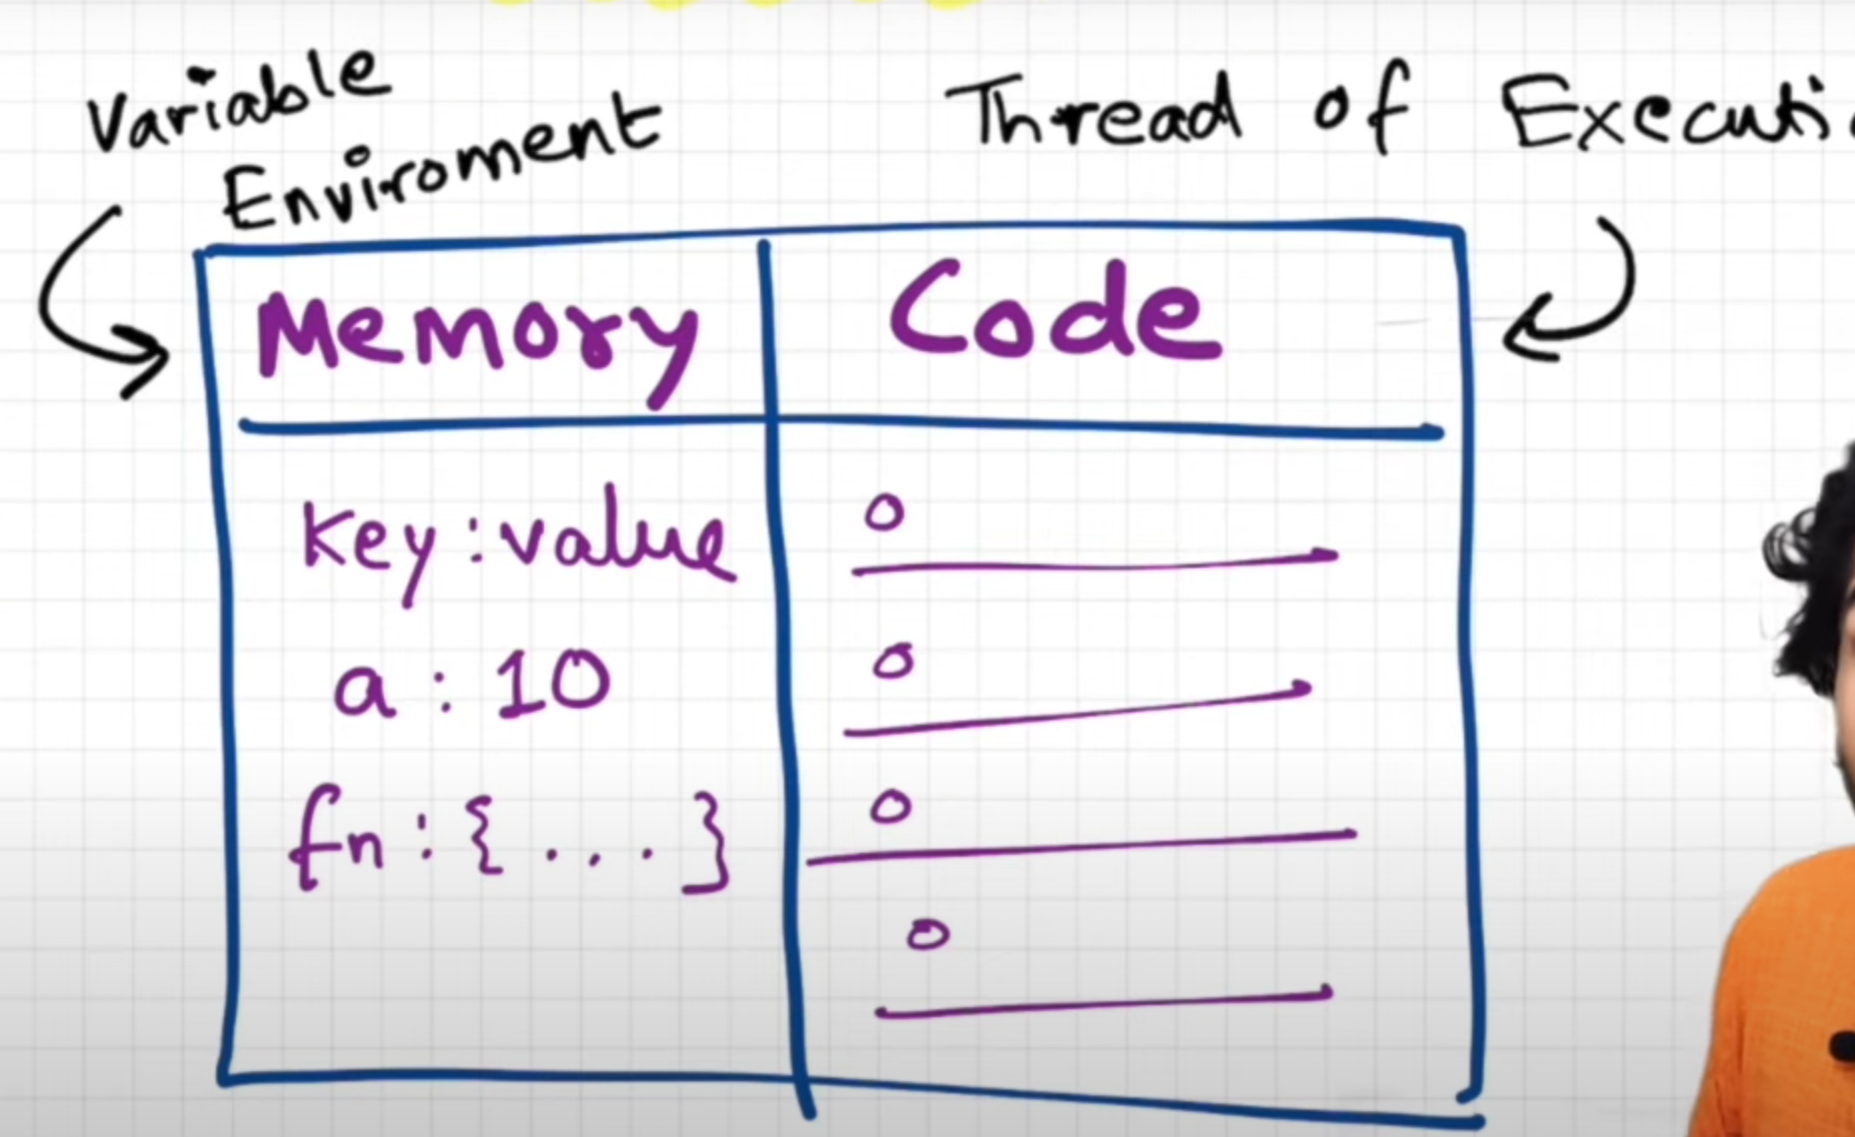 Variable
Enviroment
Thread of Executi
Memory
Code
key:value
a : 10
fn : { . . . }